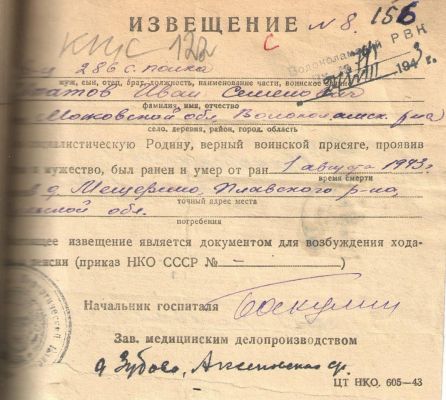 ИЗВЕЩЕНИЕ N 8. 156
122 с
Волоколамский РВК
194
286 с. полка
муж, сын, отец, брат, должность, наименование части, воинское
атов Иван Семенович
фамилия, имя, отчество
Московской обл. Волоколамск. р-на
село, деревня, район, город, область
циалистическую Родину, верный воинской присяге, проявив
и мужество, был ранен и умер от ран 1 августа 1943г.
время смерти
в д. Мещерино, Плавского р-на,
ской обл.
точный адрес места
погребения
щее извещение является документом для возбуждения хода-
пенсии (приказ НКО СССР № - )
Начальник госпиталя
Зав. медицинским делопроизводством
д. Зубово,
ЦТ НКО. 605—43